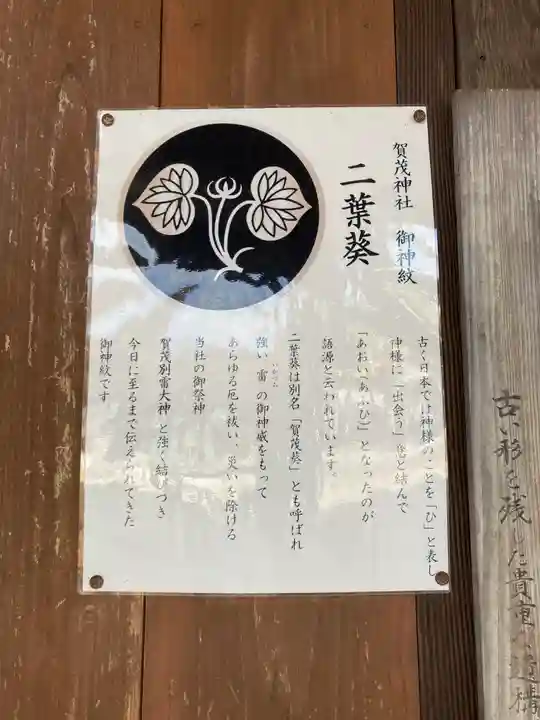 賀茂神社　御神紋
二葉葵
古く日本では神様のことを「ひ」と表し
神様に「出会う」意と結んで
「あおい（あふひ）」となったのが
語源と云われています。
二葉葵は別名「賀茂葵」とも呼ばれ
強い雷の御神威をもって
いかづち
あらゆる厄を祓い、災いを除ける
当社の御祭神
賀茂別雷大神と強く結びつき
今日に至るまで伝えられてきた
御神紋です
古い形を残した貴重な遺構